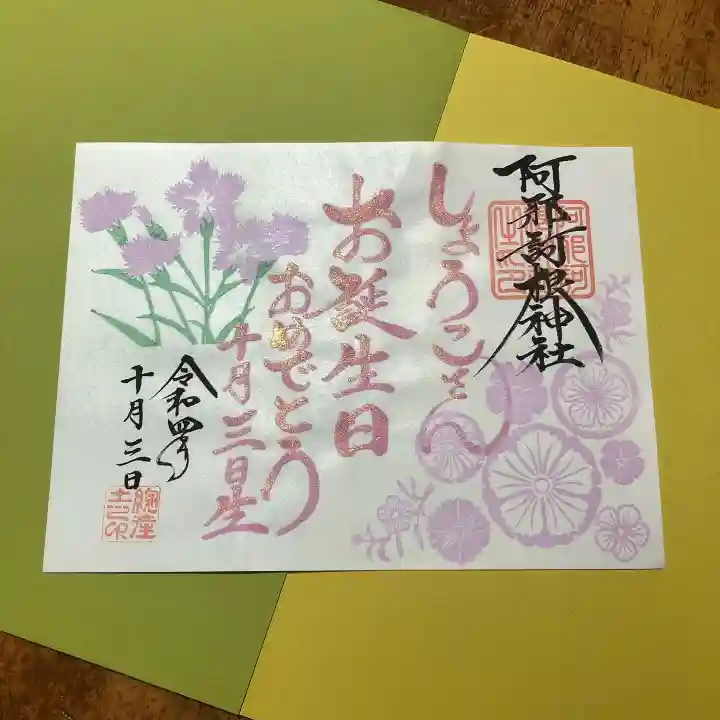 阿邪訶根神社
しょうこさんへ
お誕生日
おめでとう
十月三日生
令和四年
十月三日